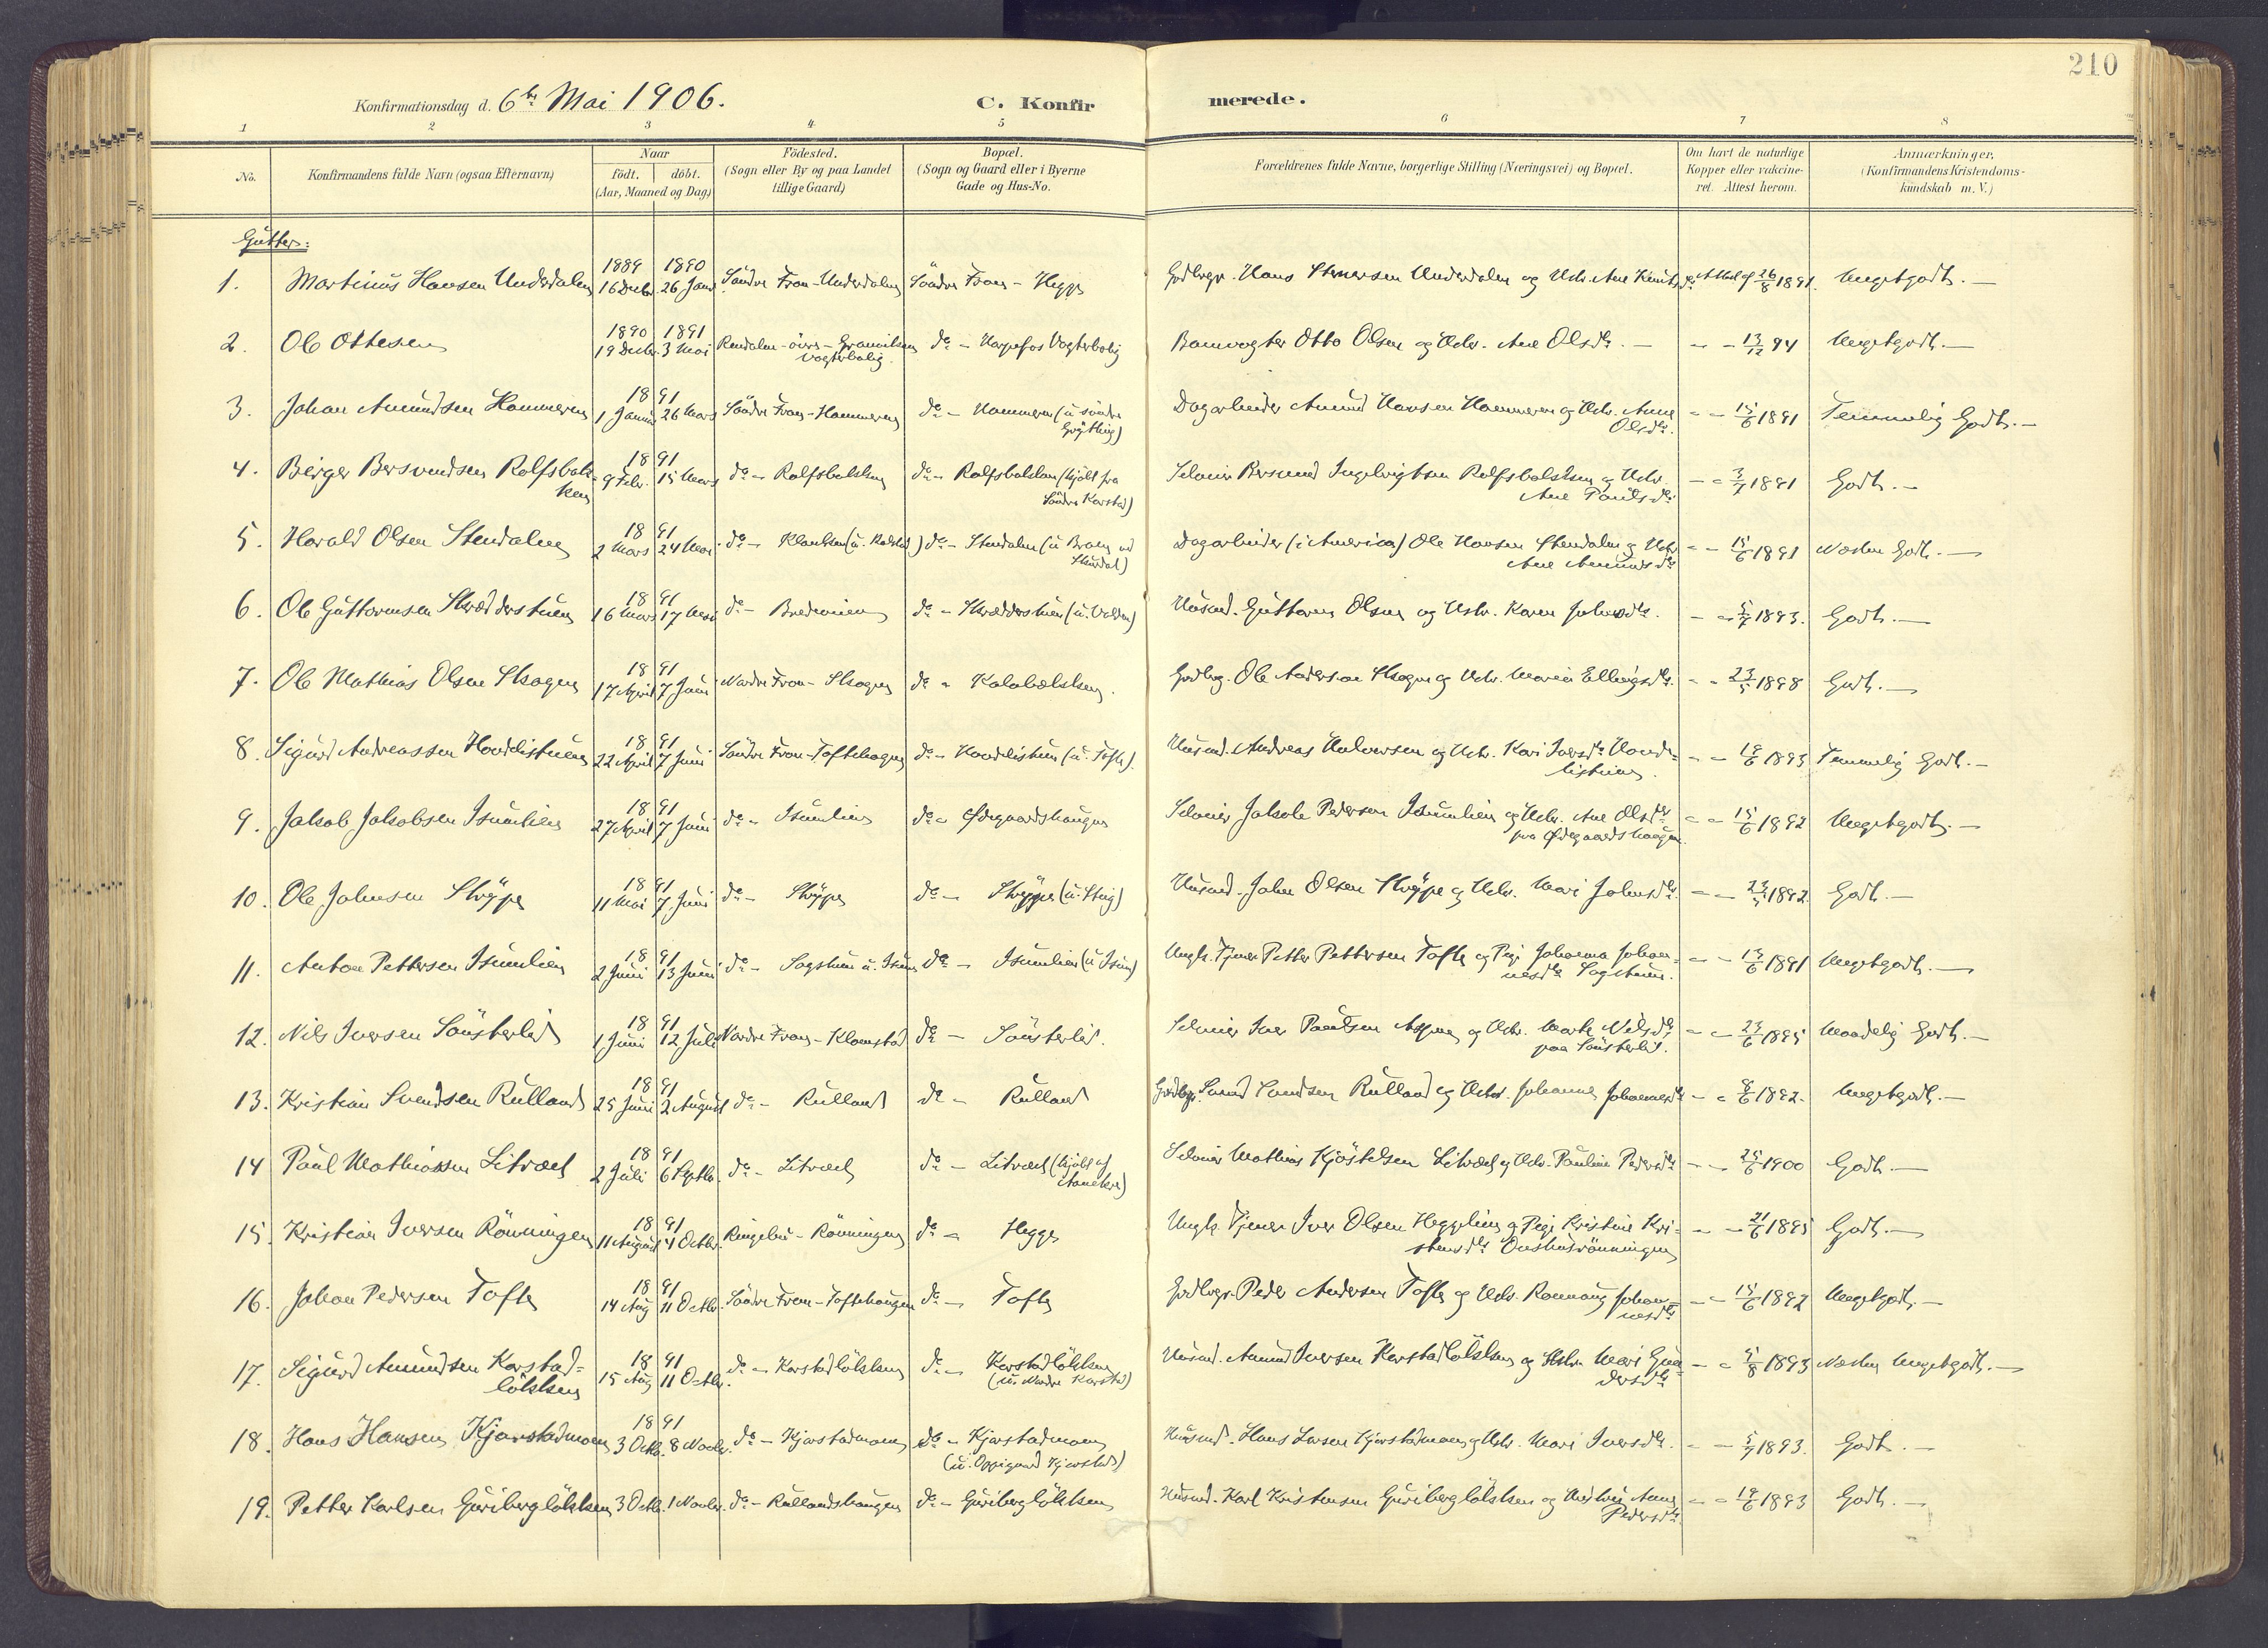 210
Konfirmationsdag d. 6te Mai 1906. C. Konfirmerede.
1 2 3 4 5 6 7 8
No. Konfirmandens fulde Navn (ogsaa Efternavn) Naar födt. döbt. (Aar, Maaned og Dag) Födested. (Sogn eller By og paa Landet tillige Gaard) Bopæl. (Sogn og Gaard eller i Byerne Gade og Hus-No. Forældrenes fulde Navne, borgerlige Stilling (Næringsvei) og Bopæl. Om havt de naturlige Kopper eller vakcineret. Attest herom. Anmærkninger. (Konfirmandens Kristendomskundskab m. V.)
Gutter:
1. Martinus Hansen Underdalen 1889 16 Decbr. 1890 26 Janr Söndre Fron - Underdalen Söndre Fron - Hegge Gdbrgr. Hans Stenersen Underdalen og Hstr. Ane Knutsdr Attest af 26/8 1891. Meget godt. —
2. Ole Ottesen 1890 19 Decbr. 1891 3 Mai Rendalen - övre - Vogterbolig do - Harpefos Vogterbolig Banevogter Otto Olsen og Hstr. Ane Olsdr. — - - 13/12 94 Meget godt. —
3. Johan Amundsen Hammeren 1891 1 Januar 26 Mars Söndre Fron - Hammeren do - Hammeren (u. söndre Grytting) Dagarbeider Amund Hansen Hammeren og Hstr. Anne Olsdr. - - 15/6 1891 Temmelig Godt. —
4. Birger Bersvendsen Rolfsbakken 1891 9 Febr. 15 Mars do - Rolfsbakken do - Rolfsbakken (kjöbt fra Söndre Korstad) Selveier Bersvend Ingebrigtsen Rolfsbakken og Hstr. Ane Paulsdr - - 3/7 1891 Godt. —
5. Harald Olsen Stendalen 1891 2 Mars 24 Mai do - Klænken (u. ) do - Stendalen (u. ) Dagarbeider (i America) Ole Hansen Stendalen og Hstr Ane Amundsdr - - 15/6 1891 Næsten Godt. —
6. Ole Guttormsen Skrædderstuen 1891 16 Mars 17 Mai do - Bredevien do - Skrædderstuen (u. Volden) Husmd. Guttorm Olsen og Hstr. Karen Johnsdr. - - 5/7 1893. Godt. —
7. Ole Mathias Olsen Skogen 1891 17 April 7 Juni Nordre Fron - Skogen do - Kalabækken. Gdbrg. Ole Andersen Skogen og Hstr. Maria Ellingsdr. - - 23/5 1898 Godt. —
8. Sigurd Andreassen Hovdelistuen 1891 22 April 7 Juni Söndre Fron - Toftehagen do - Hovdelistuen (u. Tofte). Husmd. Andreas Halvorsen og Hstr. Kari Iversdr Hovdelistuen. - - 19/6 1893 Temmelig Godt. —
9. Jakob Jakobsen Isumlien 1891 27 April 7 Juni do - Isumlien do - Ødegaardshaugen Selveier Jakob Pedersen Isumlien og Hstr. Ane Olsdr paa Ødegaardshaugen. - - 15/6 1892 Meget godt. —
10. Ole Johnsen Ströype 1891 11 Mai 7 Juni do - Ströype do - Ströype (u. Steig) Husmd. John Olsen Ströype og Hstr. Mari Johnsdr. - - 23/5 1892. Godt. —
11. Anton Pettersen Isumlien 1891 2 Juni 13 Juni do - Sagstuen u. Isum do - Isumlien (u Isum) Ungk. Tjener Petter Pettersen Tofte og Pige Johanna Johannesdr Sagstuen. - - 13/6 1891 Meget godt. —
12. Nils Iversen Sönsterlid 1891 1 Juni 12 Juli Nordre Fron - Klomstad do - Sönsterlid. Selveier Iver Paulsen Aspen og Hstr. Marte Nilsdr paa Sönsterlid. - - 23/6 1895 Maadelig Godt. —
13. Kristian Svendsen Rulland 1891 25 Juni 2 August do - Rulland do - Rulland Gdbgr. Svend Svendsen Rulland og Hstr. Johanne Johannesdr - - 8/6 1892. Meget godt. —
14 Paul Mathiassen Litræet 1891 2 Juli 6 Septbr. do - Litræet do - Litræet (kjöbt af ) Selveier Mathias Kjöstelsen Litræet og Hstr. Pauline Pedersdr - - 25/6 1900 Godt. —
15. Kristian Iversen Rönningen 1891 11 August 4 Octbr. Ringebu - Rönningen do - Hegge Ungk. Tjener Iver Olsen Heggelien og Pige Kristine Kristensdr - - 21/6 1895 Godt. —
16. Johan Pedersen Tofte 1891 14 Aug 11 Octbr. Söndre Fron - Toftehaugen do - Tofte Gdbrgr. Peder Andersen Tofte og Hstr. Rønnaug Johannesdr - - 15/6 1892 Meget godt. —
17. Sigurd Amundsen Korstadlökken 1891 15 Aug 11 Octbr. do - Korstadlökken do - Korstadlökken (u. Nordre Korstad) Husmd. Amund Iversen Korstadlökken og Hstr. Mari Gudersdr - - 5/8 1893 Næsten Meget godt. —
18. Hans Hansen Kjorstadmoen 1891 3 Octb. 8 Novbr. do - Kjorstadmoen do - Kjorstadmoen (u. Oppigaard Kjorstad) Husmd. Hans Larsen Kjorstadmoen og Hstr. Mari Iversdr. - - 5/7 1893. Godt. —
19. Petter Karlsen Guriberglökken 3 Octb. 1 Novbr. do - Rullandshaugen do - Guriberglökken Husmd. Karl Kristensen Guriberglökken og Hustru Anne Pedersdr. - - 19/6 1893 Godt. —